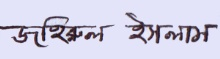 জহিরুল ইসলাম